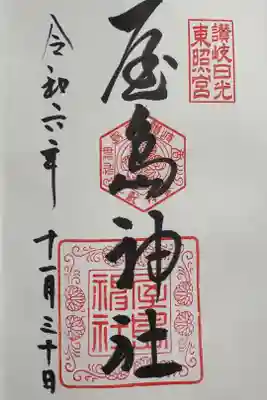 讃岐日光
東照宮
屋島神社
令和六年
十一月三十日